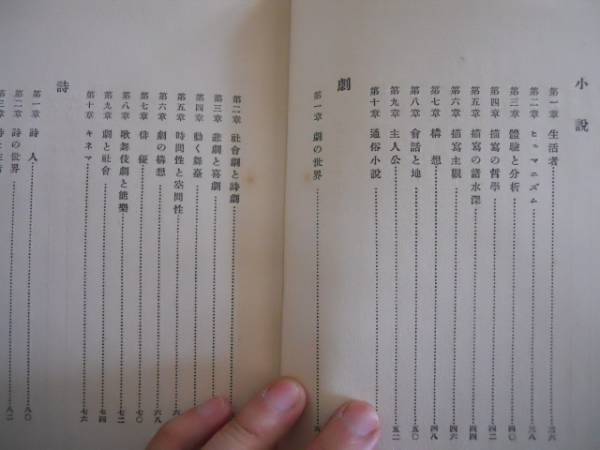 小説
第一章 生活者 三六
第二章 ヒューマニズム 三八
第三章 體驗と分析 四〇
第四章 描寫の哲學 四二
第五章 描寫の諸水深 四四
第六章 描寫主觀 四六
第七章 構想 四八
第八章 會話と地 五〇
第九章 主人公 五二
第十章 通俗小説
劇
第一章 劇の世界
第二章 社會劇と詩劇
第三章 悲劇と喜劇
第四章 動く舞臺
第五章 時間性と空間性
第六章 劇の構想 六八
第七章 俳優 七〇
第八章 歌舞伎劇と能樂 七二
第九章 劇と社會 七四
第十章 キネマ 七六
詩
第一章 詩人 八〇
第二章 詩の世界 八二
第三章 詩と生活